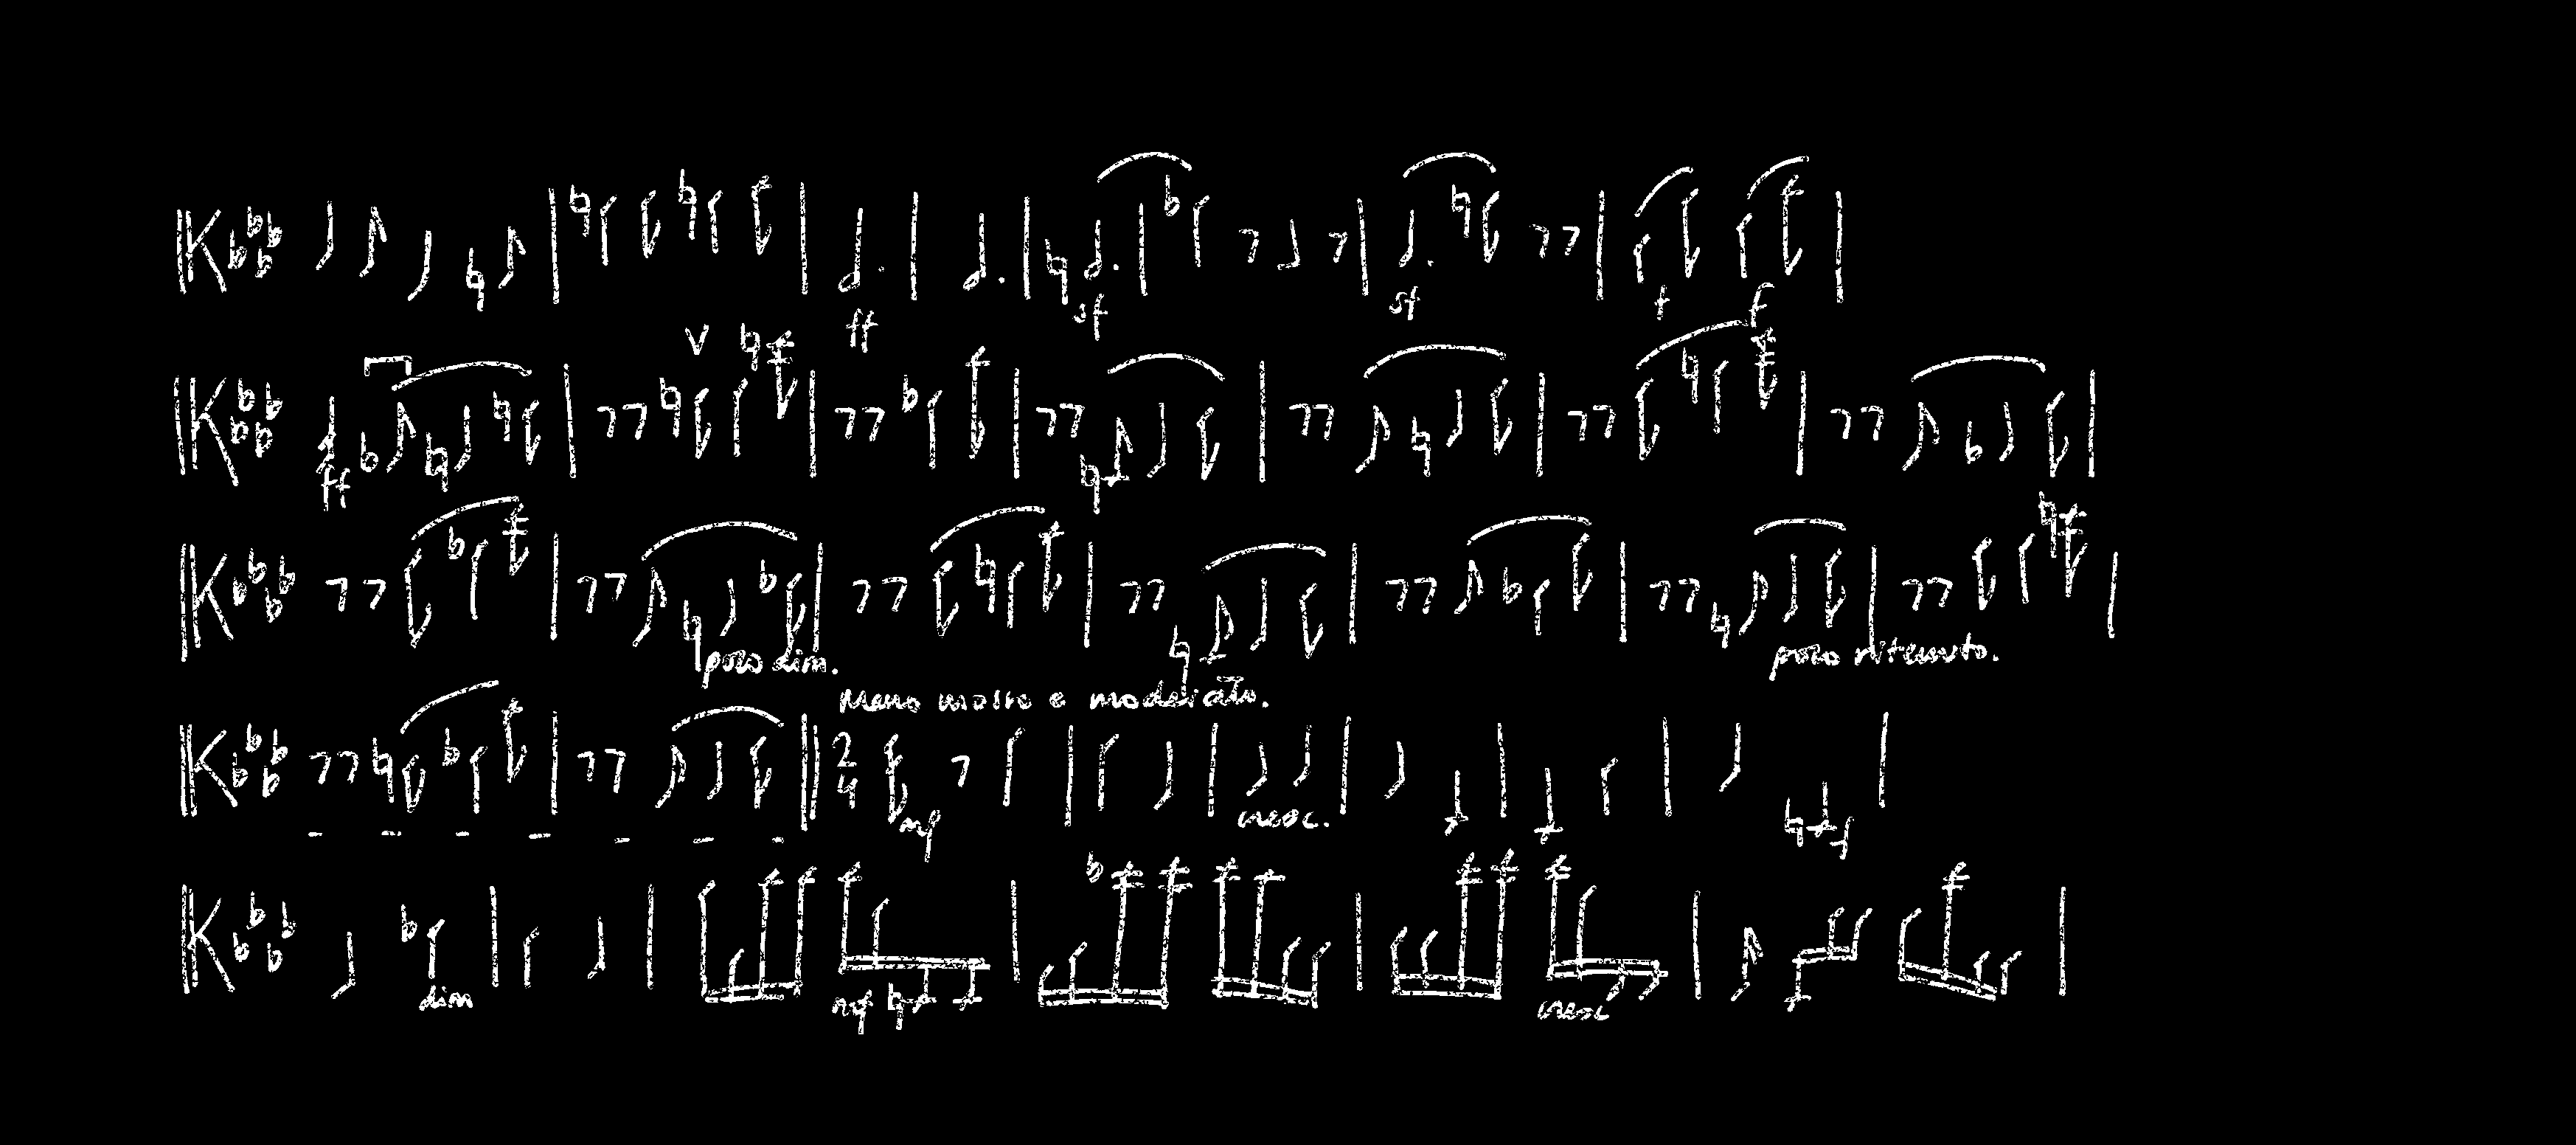 ff sf sf f f
ff
poco dim. poco ritenuto.
Meno mosso e moderato.
2
4
mf cresc. f
dim mf cresc